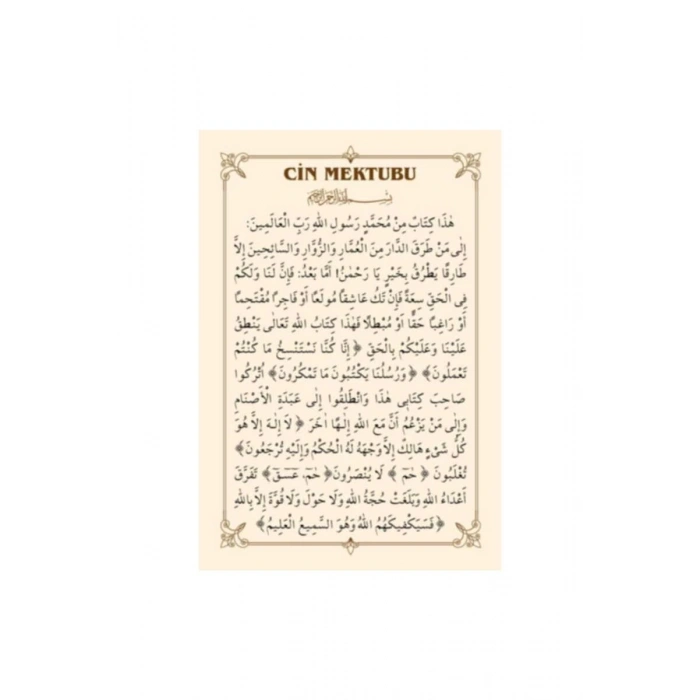 CİN MEKTUBU
بِسْمِ اللهِ الرَّحْمٰنِ الرَّحِيمِ
هٰذَا كِتَابٌ مِنْ مُحَمَّدٍ رَسُولِ اللهِ رَبِّ الْعَالَمِينَ:
اِلٰى مَنْ طَرَقَ الدَّارَ مِنَ الْعُمَّارِ وَالزُّوَّارِ وَالسَّائِحِينَ اِلاَّ
طَارِقًا يَطْرُقُ بِخَيْرٍ يَا رَحْمٰنُ! اَمَّا بَعْدُ: فَاِنَّ لَنَا وَلَكُمْ
فِى الْحَقِّ سِعَةً فَاِنْ تَكُ عَاشِقًا مُولَعًا اَوْ فَاجِرًا مُقْتَحِمًا
اَوْ رَاغِبًا حَقًّا اَوْ مُبْطِلًا فَهٰذَا كِتَابُ اللهِ تَعَالٰى يَنْطِقُ
عَلَيْنَا وَعَلَيْكُمْ بِالْحَقِّ ﴿ اِنَّا كُنَّا نَسْتَنْسِخُ مَا كُنْتُمْ
تَعْمَلُونَ﴾ ﴿ وَرُسُلُنَا يَكْتُبُونَ مَا تَمْكُرُونَ﴾ اُتْرُكُوا
صَاحِبَ كِتَابِى هٰذَا وَانْطَلِقُوا اِلٰى عَبَدَةِ الْاَصْنَامِ
وَاِلٰى مَنْ يَزْعُمُ اَنَّ مَعَ اللهِ اِلٰهًا اٰخَرَ ﴿ لَا اِلٰهَ اِلاَّ هُوَ
كُلُّ شَىْءٍ هَالِكٌ اِلاَّ وَجْهَهُ لَهُ الْحُكْمُ وَاِلَيْهِ تُرْجَعُونَ﴾
تُغْلَبُونَ ﴿ حٰمٓ ﴾ لَا يُنْصَرُونَ﴿ حٰمٓ، عٓسٓقٓ﴾ تَفَرَّقَ
اَعْدَاءُ اللهِ وَبَلَغَتْ حُجَّةُ اللهِ وَلَا حَوْلَ وَلَا قُوَّةَ اِلاَّ بِاللهِ
﴿ فَسَيَكْفِيكَهُمُ اللهُ وَهُوَ السَّمِيعُ الْعَلِيمُ﴾